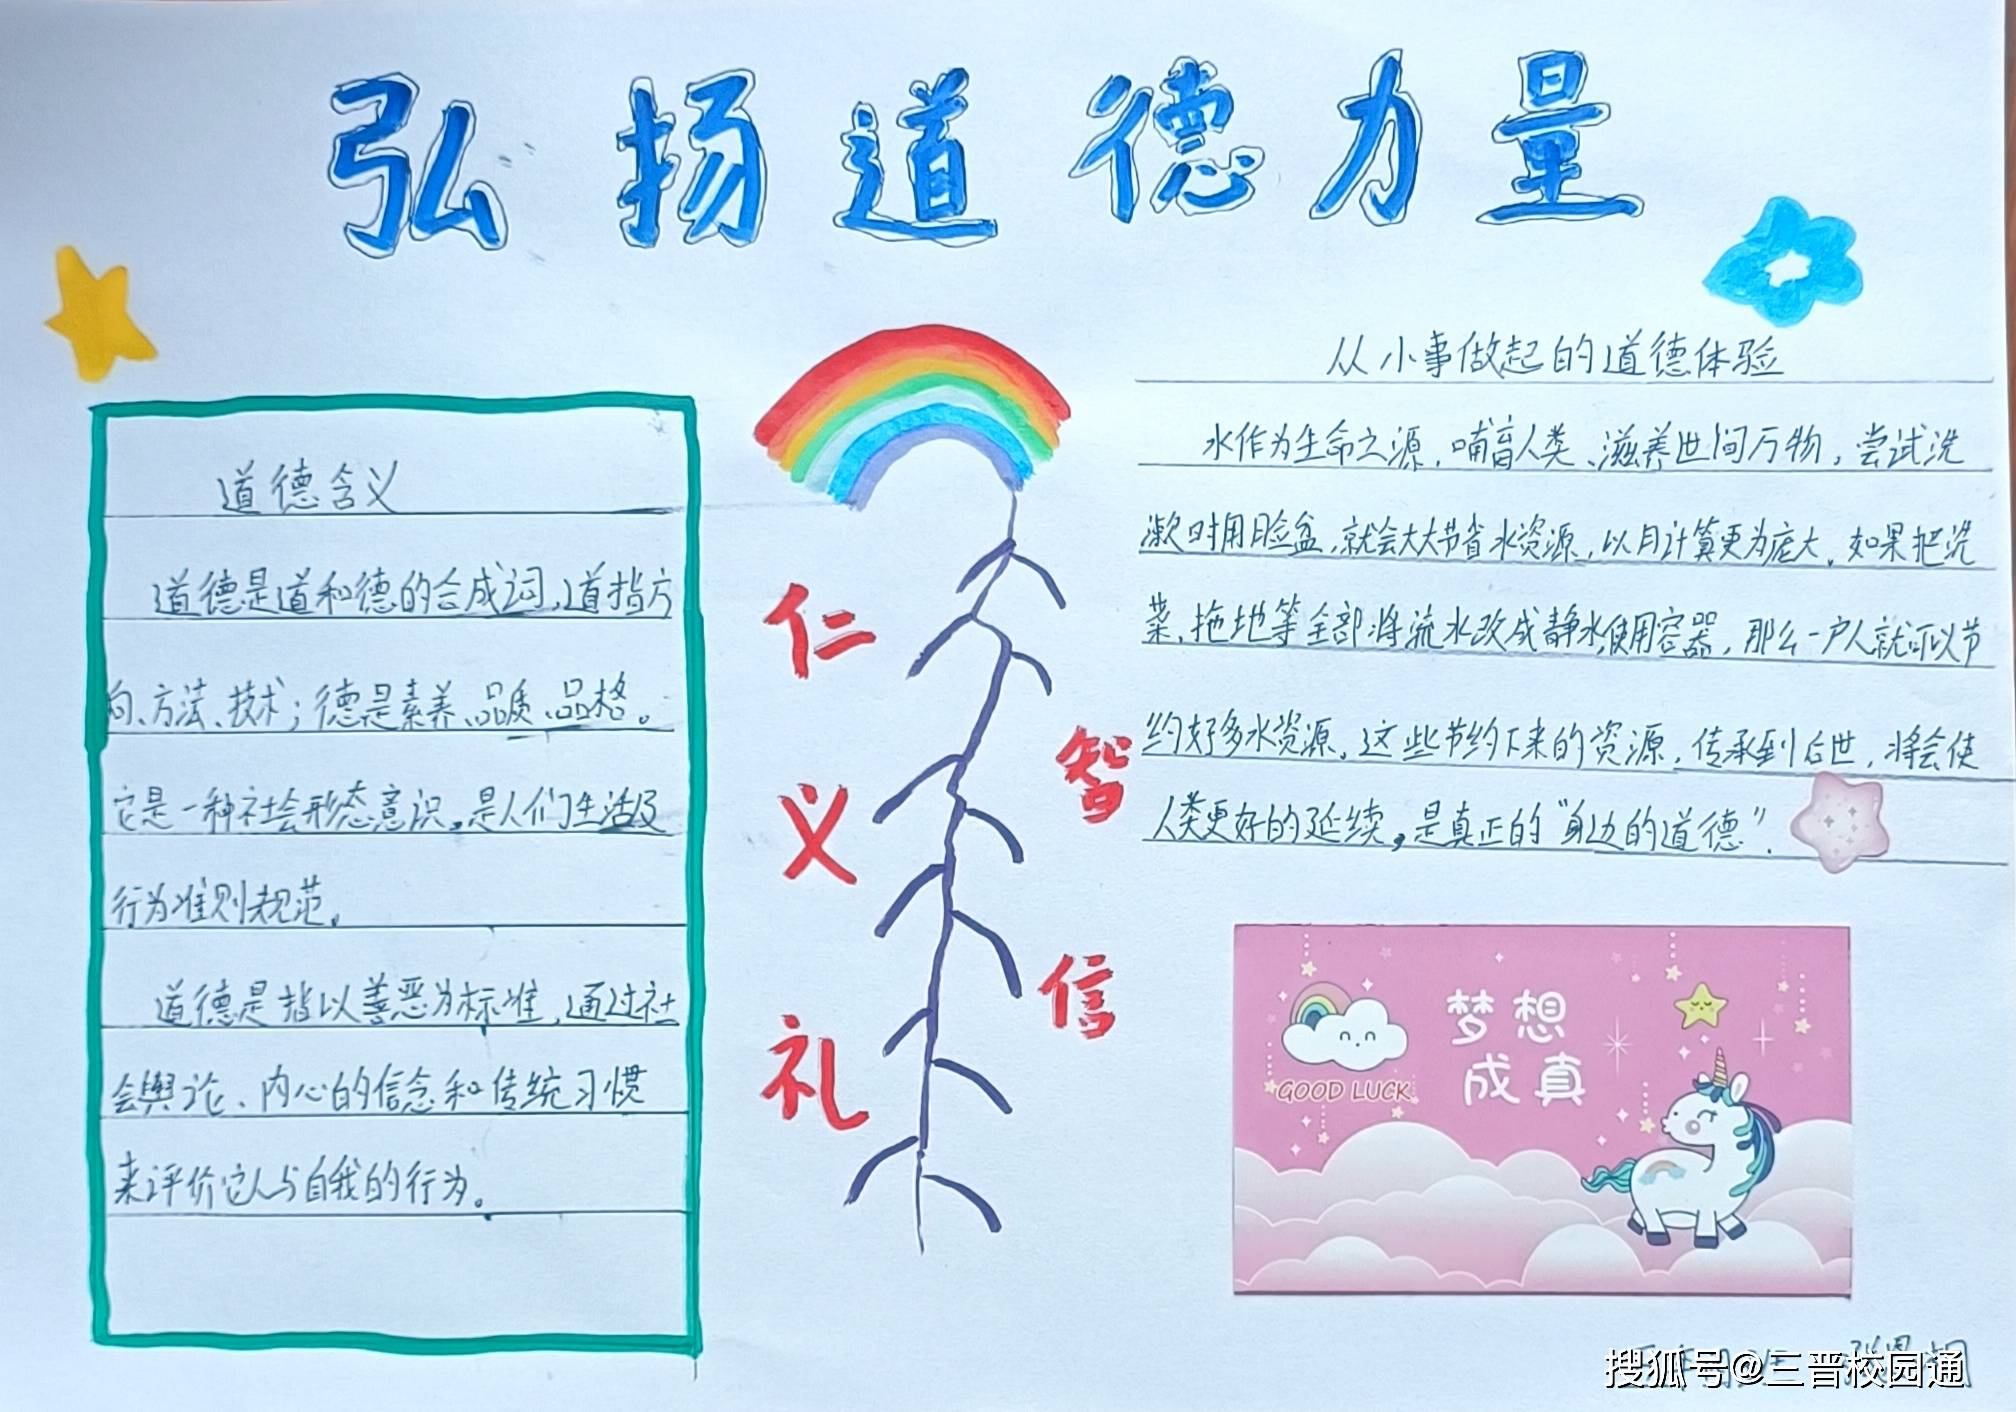 弘扬道德力量
道德含义
道德是道和德的合成词,道指方
向、方法、技术;德是素养、品质、品格。
它是一种社会形态意识,是人们生活及
行为准则规范。
道德是指以善恶为标准,通过社
会舆论、内心的信念和传统习惯
来评价它人与自我的行为。
仁
义
礼
智
信
从小事做起的道德体验
水作为生命之源,哺育人类、滋养世间万物,尝试洗
漱时用脸盆,就会大大节省水资源,以月计算更为庞大,如果把洗
菜、拖地等全部将流水改成静水,使用容器,那么一户人就可以节
约好多水资源。这些节约下来的资源,传承到后世,将会使
人类更好的延续,是真正的“身边的道德”.
GOOD LUCK
梦想
成真
搜狐号@三晋校园通